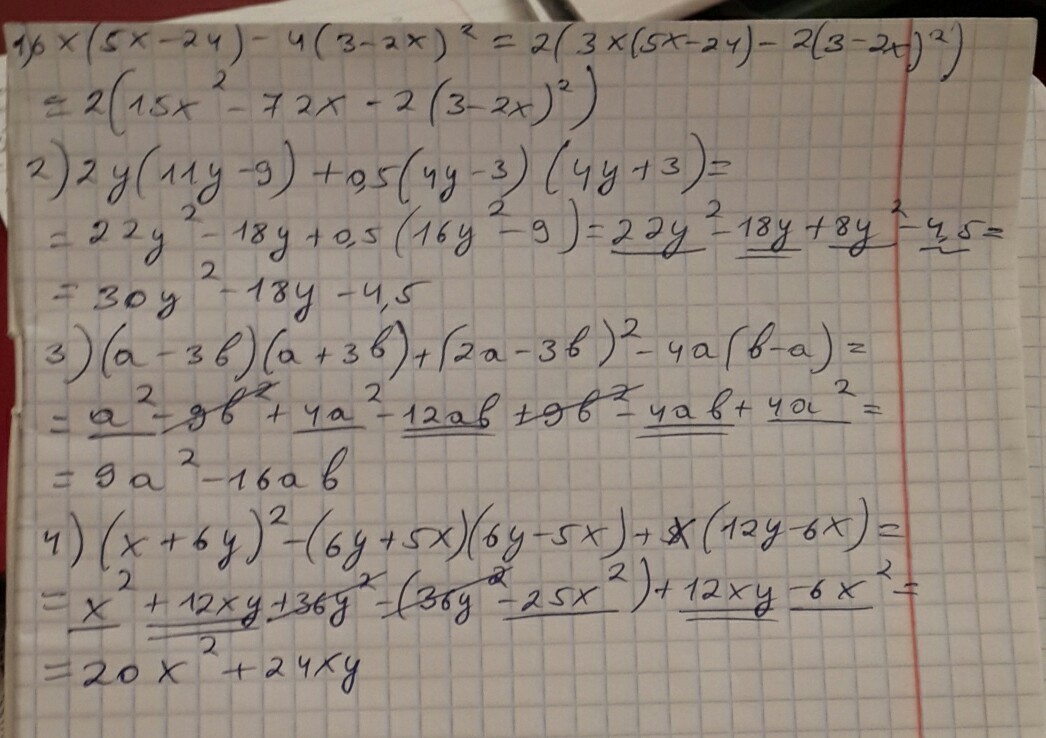 1) 6x(5x-24)-4(3-2x)²=2(3x(5x-24)-2(3-2x)²)
=2(15x²-72x-2(3-2x)²)
2) 2y(11y-9)+0,5(4y-3)(4y+3)=
=22y²-18y+0,5(16y²-9)=22y²-18y+8y²-4,5=
=30y²-18y-4,5
3) (a-3b)(a+3b)+(2a-3b)²-4a(b-a)=
=a²-9b²+4a²-12ab+9b²-4ab+4a²=
=9a²-16ab
4) (x+6y)²-(6y+5x)(6y-5x)+x(12y-6x)=
=x²+12xy+36y²-(36y²-25x²)+12xy-6x²=
=20x²+24xy